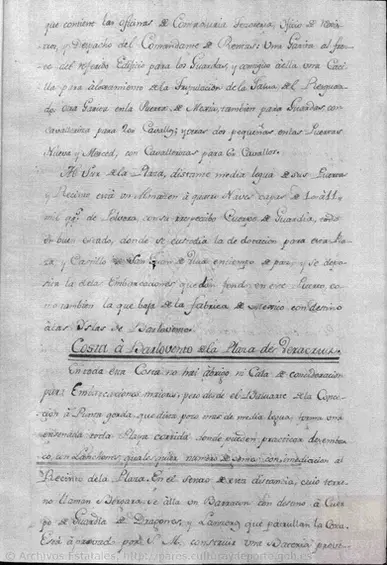 que contiene las oficinas de Contaduria Tesoreria, Oficio de Rexis-
tros, y Despacho del Comandante de Rentas: Una Garita al fren-
te del referido Edificio para los Guardas, y contigua á ella una Casi-
lla para alojamiento de la Tripulacion de la Falua del Resguar-
do: Una Garita en la Puerta de Mexico, tambien para Guardas, con
cavalleriza para Cavallos; y otras dos pequeñas, en las Puertas
Nueva y Merced, con Cavallerizas para Cavallos.
Al Sur de la Plaza, distante media legua de sus
y Recinto está un Almacen á quatro Naves capaz de
mil de Polvora, con su respectivo Cuerpo de Guardia, todo
en buen estado, donde se custodia la de dotacion para esta Pla-
za y Castillo de Sn Juan de Ulua en tiempo de paz, y se depo-
sita la de las Embarcaciones que dan fondo en este Puerto, co-
mo tambien la que baja de la fabrica de Mexico con destino
á las Islas de Barlovento.
Costa á Barlovento de la Plaza de Veracruz.
En toda esta Costa no hai abrigo ni Cala de consideracion
para Embarcaciones maiores, pero desde el Baluarte de la Concep-
cion á Punta gorda, que dista poco mas de media legua, forma una
toda Playa corrida donde pueden practicar desembar-
co, con Lanchones, qualquier numero de con inmediacion al
Recinto de la Plaza. En el centro de esta distancia, cuio terre-
no llaman Vergara, se alla un Barracon con destino á Cuer-
po de Guardia de Dragones, y Lanceros, que patrullan la Costa.
Está aprovado por S. M. construir una Bateria provi-
© Archivos Estatales, http://pares.culturaydeporte.gob.es